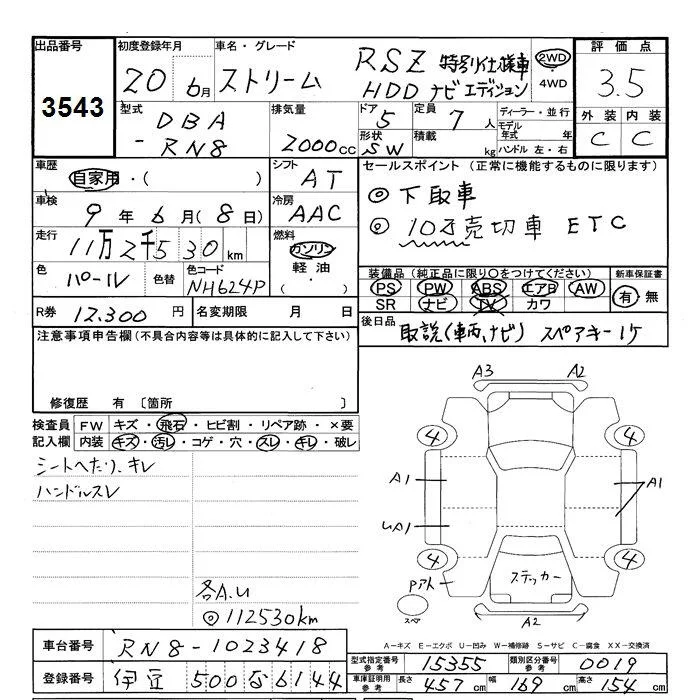 出品番号 初度登録年月 車名・グレード 評価点
3543 20 6月 ストリーム RSZ 特別仕様車 HDDナビエディション 2WD・4WD 3.5
型式 DBA-RN8 排気量 2000cc ドア 5 定員 7人 ディーラー・並行
形状 SW 積載 kg モデル年式 年 ハンドル 左・右
外装 内装
C C
車歴 自家用・( ) シフト AT
セールスポイント (正常に機能するものに限ります)
車検 9年6月(8日) 冷房 AAC
◎下取車
◎10万売切車 ETC
走行 11万2千530km 燃料 ガソリン 軽油・( )
色 パール 色替 色コード NH624P
装備品(純正品に限り○をつけてください) 新車保証書
PS PW ABS エアB AW 有・無
SR ナビ TV カワ
R券 12,300円 名変期限 月 日
後日品 取説(車両,ナビ) スペアキー1ケ
注意事項申告欄(不具合内容等は具体的に記入して下さい)
修復歴 有〔箇所 〕
検査員記入欄 FW キズ・飛石・ヒビ割・リペア跡・×要
内装 キズ・汚レ・コゲ・穴・スレ・キレ・破レ
シートへたり、キレ
ハンドルスレ
各A.U
◎112530km
A3 A2
4 4
A1 A1
UA1
4 4
Pアト ステッカー
スペア
A2
A-キズ E-エクボ U-凹み W-補修跡 S-サビ C-腐食 XX-交換済
車台番号 RN8-1023418
型式指定番号 参考 15355 類別区分番号 参考 0019
登録番号 伊豆 500 な 6144
車庫証明用 参考 長さ 457cm 幅 169cm 高さ 154cm